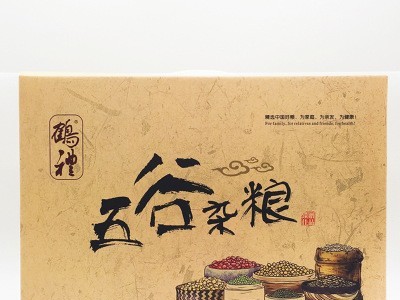 臻选中国好粮，为家庭、为亲友、为健康！
For family, for relatives and friends, for health!
鶴禮®
五谷杂粮